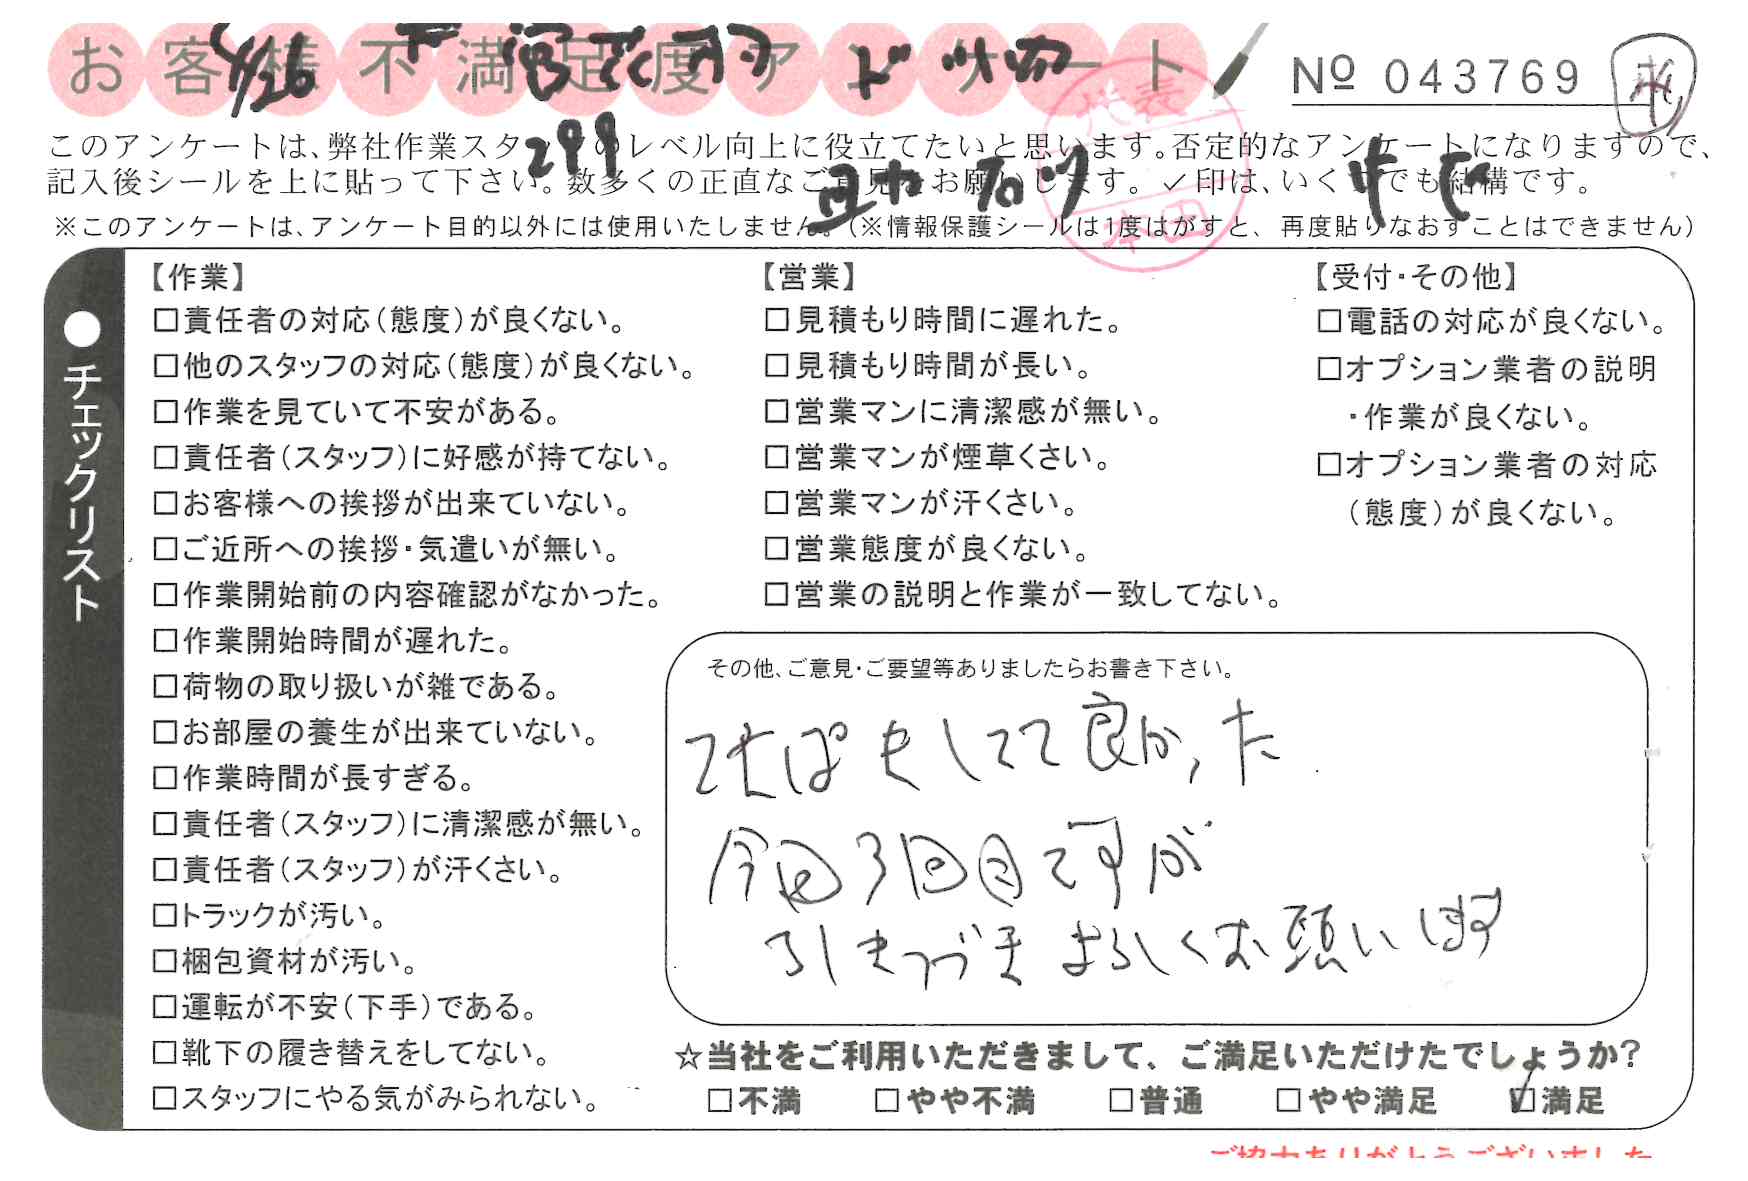 お客様不満足度アンケート
4/26
299
№ 043769
代表
本田
このアンケートは、弊社作業スタッフのレベル向上に役立てたいと思います。否定的なアンケートになりますので、
記入後シールを上に貼って下さい。数多くの正直なご意見をお願いします。✓印は、いくつでも結構です。
※このアンケートは、アンケート目的以外には使用いたしません。(※情報保護シールは1度はがすと、再度貼りなおすことはできません)
●チェックリスト
【作業】
□責任者の対応(態度)が良くない。
□他のスタッフの対応(態度)が良くない。
□作業を見ていて不安がある。
□責任者(スタッフ)に好感が持てない。
□お客様への挨拶が出来ていない。
□ご近所への挨拶・気遣いが無い。
□作業開始前の内容確認がなかった。
□作業開始時間が遅れた。
□荷物の取り扱いが雑である。
□お部屋の養生が出来ていない。
□作業時間が長すぎる。
□責任者(スタッフ)に清潔感が無い。
□責任者(スタッフ)が汗くさい。
□トラックが汚い。
□梱包資材が汚い。
□運転が不安(下手)である。
□靴下の履き替えをしてない。
□スタッフにやる気がみられない。
【営業】
□見積もり時間に遅れた。
□見積もり時間が長い。
□営業マンに清潔感が無い。
□営業マンが煙草くさい。
□営業マンが汗くさい。
□営業態度が良くない。
□営業の説明と作業が一致してない。
【受付・その他】
□電話の対応が良くない。
□オプション業者の説明
・作業が良くない。
□オプション業者の対応
(態度)が良くない。
その他、ご意見・ご要望等ありましたらお書き下さい。
てきぱきしてて良かった
今回3回目ですが
引きつづきよろしくお願いします
☆当社をご利用いただきまして、ご満足いただけたでしょうか?
□不満 □やや不満 □普通 □やや満足 ☑満足
ご協力ありがとうございました